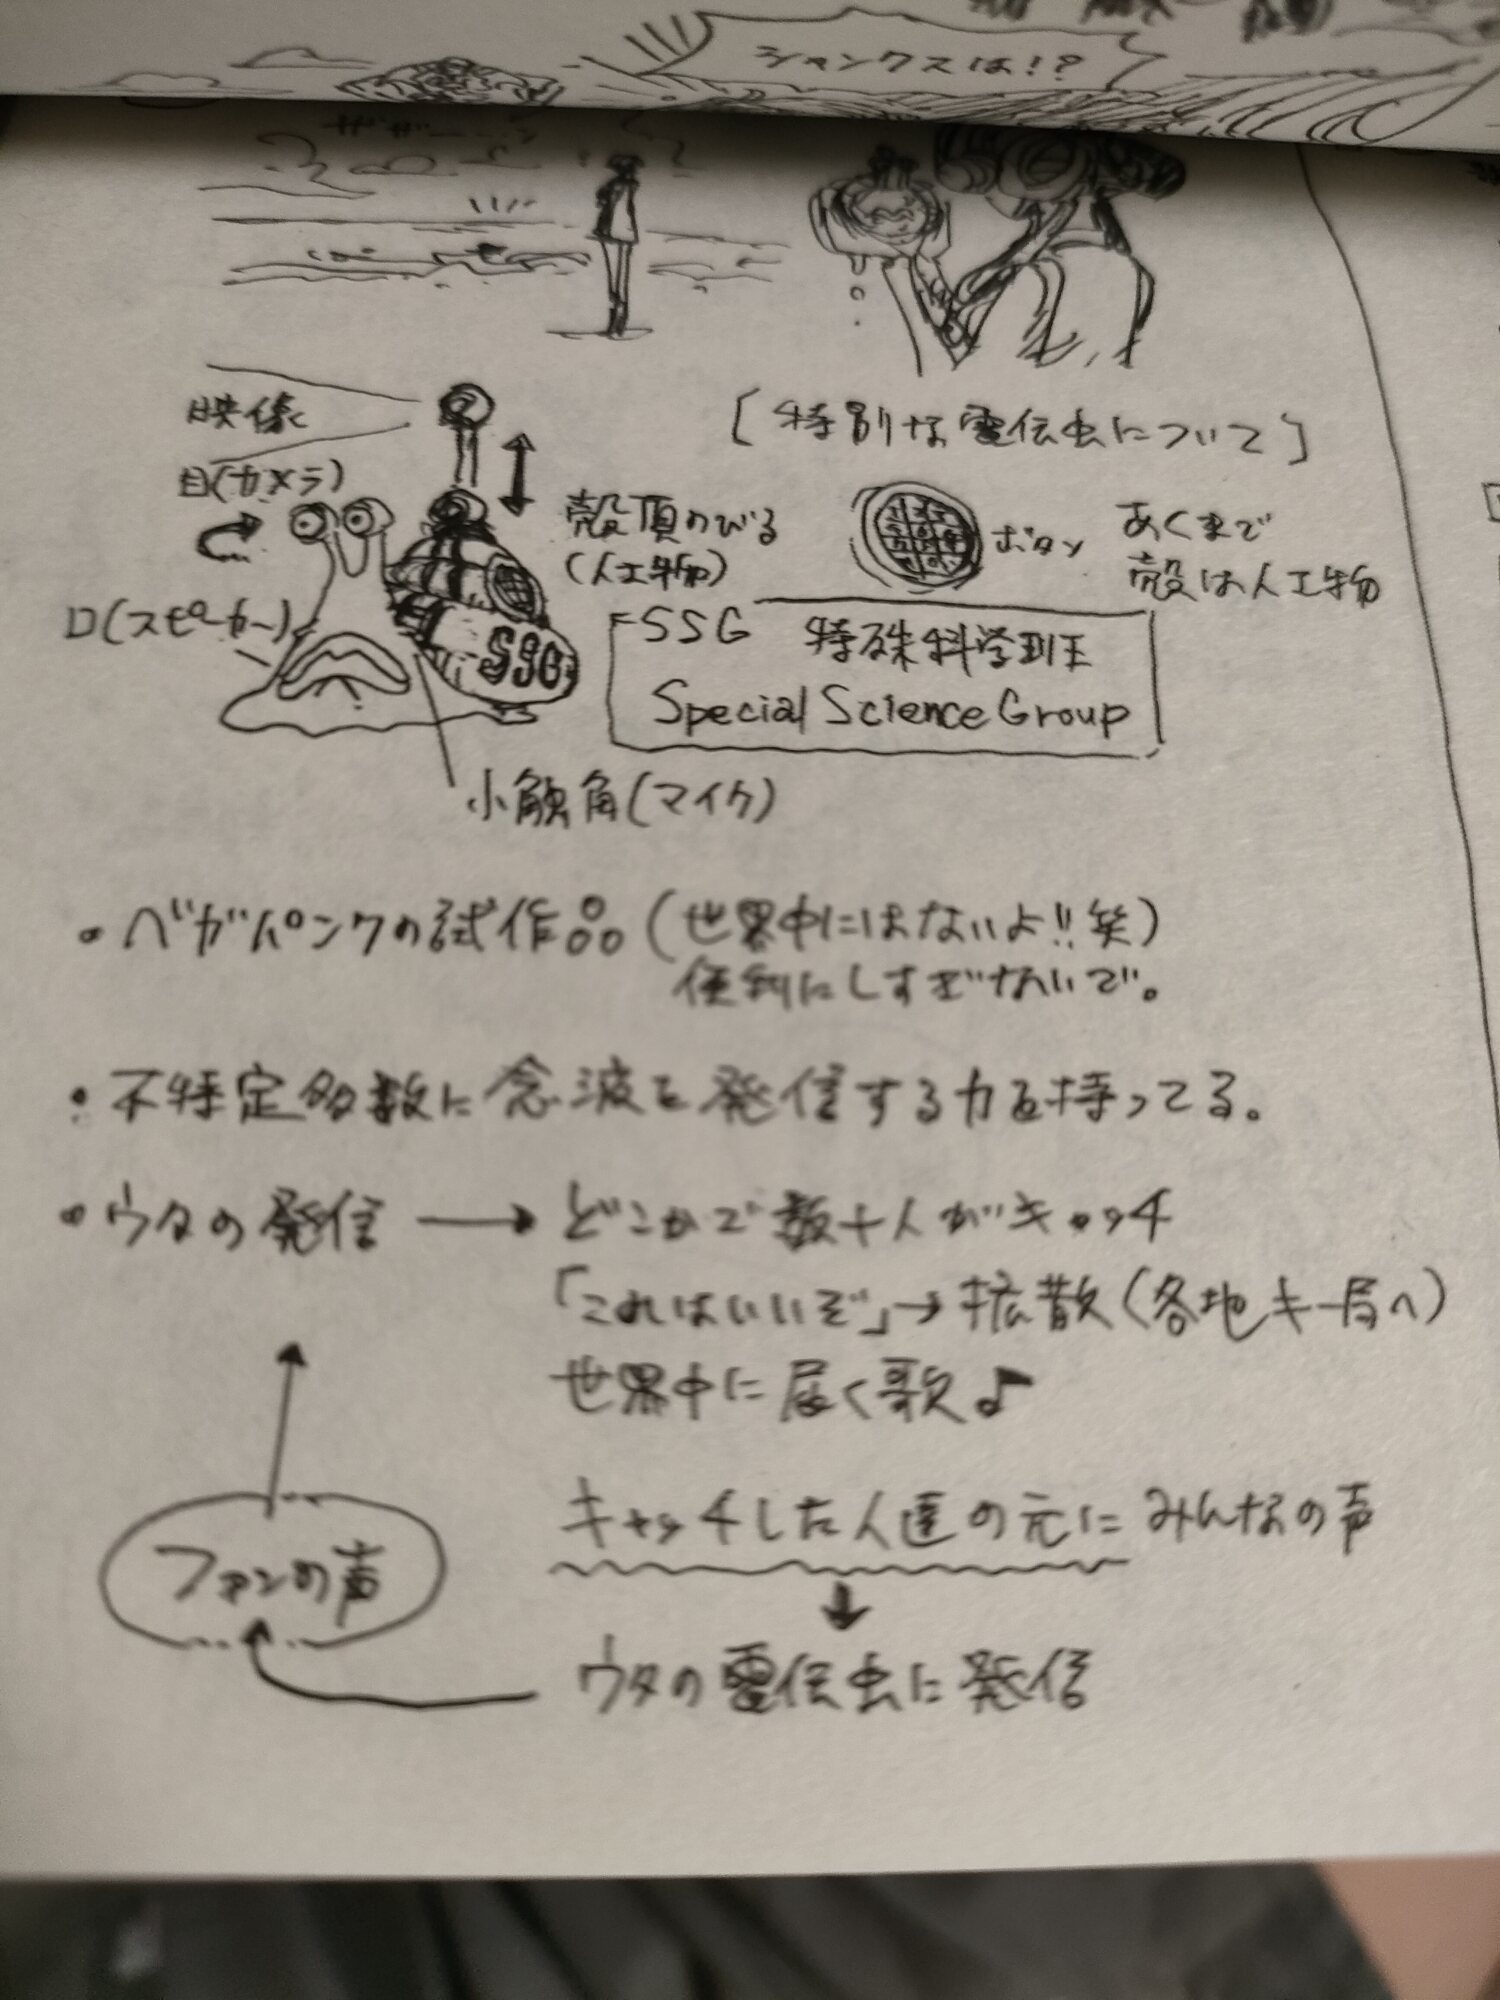 シャンクスは!?
ザザーー…
映像
[特別な電伝虫について]
目(カメラ)
殻頂のびる
(人工物)
ボタン
あくまで
殻は人工物
口(スピーカー)
SSG
SSG 特殊科学班
Special Science Group
小触角(マイク)
・ベガパンクの試作品(世界中にはないよ!!笑)
便利にしすぎないで。
・不特定多数に念波を発信する力を持ってる。
・ウタの発信 → どこかで数十人がキャッチ
「これはいいぞ」→拡散(各地キー局へ)
世界中に届く歌♪
キャッチした人達の元にみんなの声
↓
ファンの声
ウタの電伝虫に発信